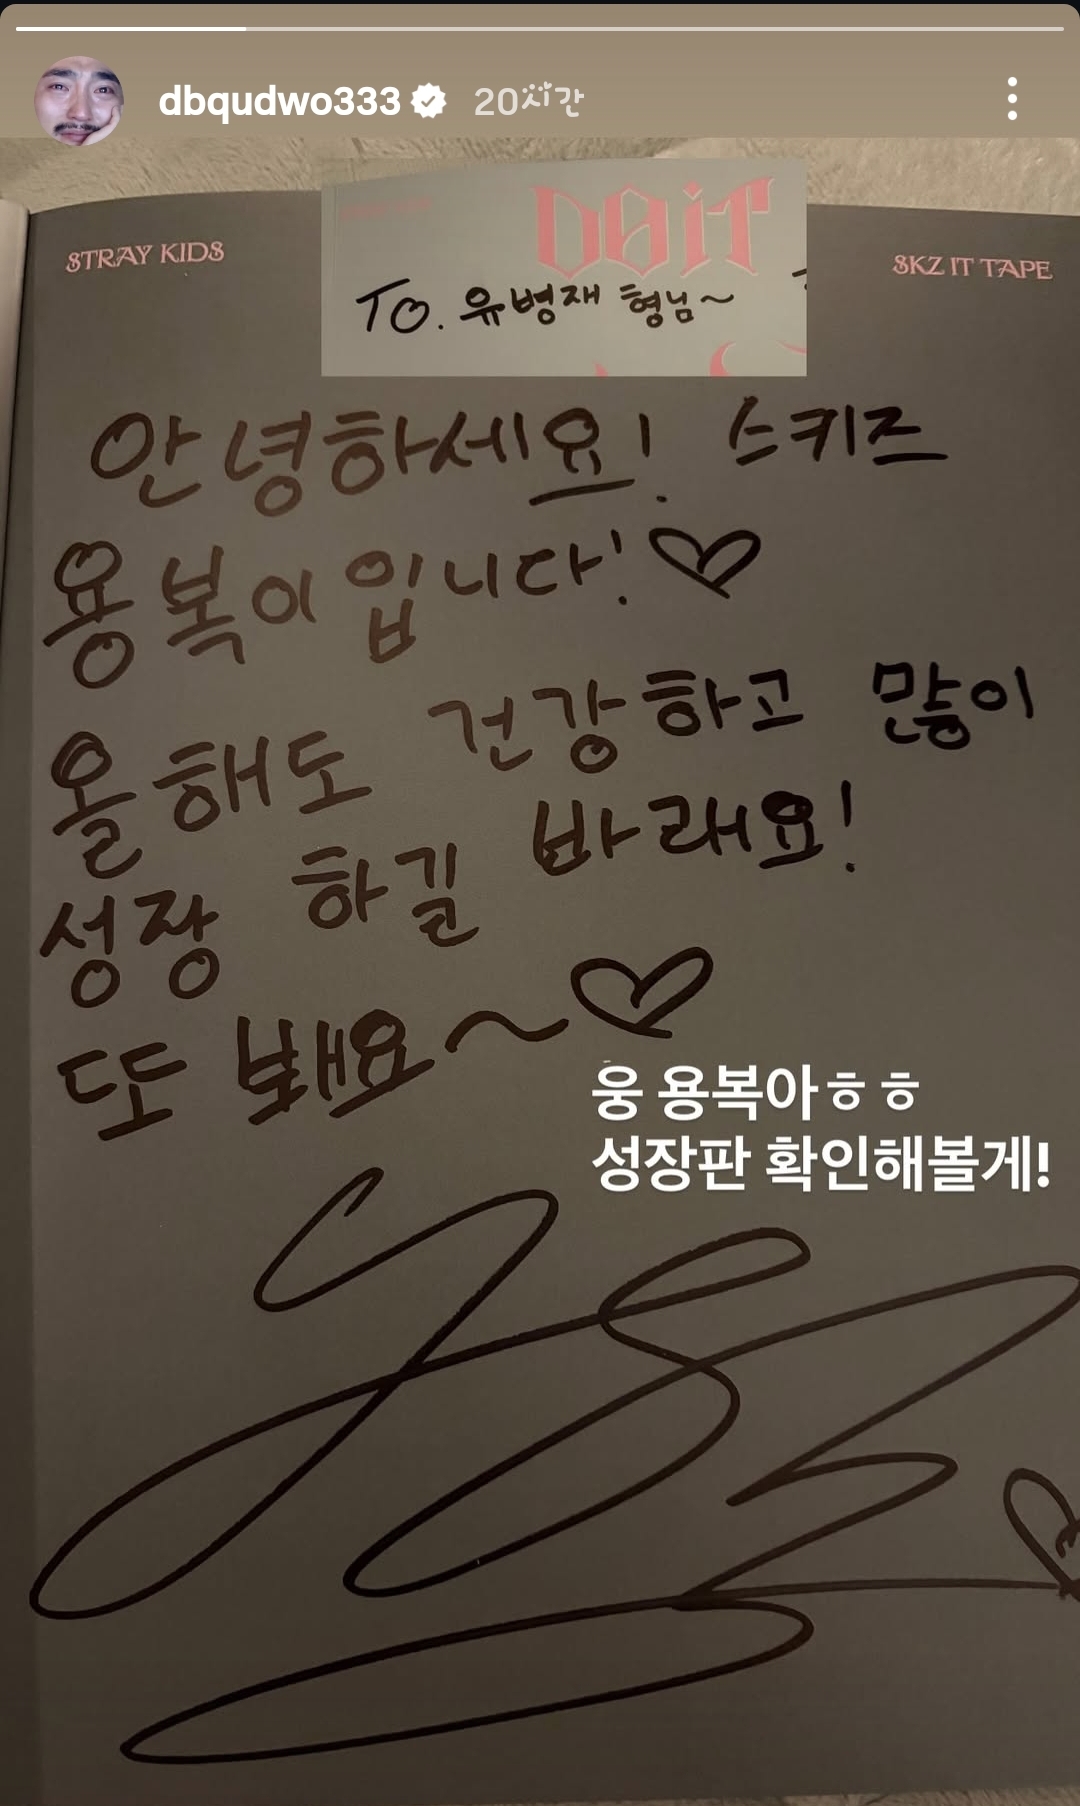 dbqudwo333 20시간
STRAY KIDS
DO IT
SKZ IT TAPE
TO. 유병재 형님~
안녕하세요! 스키즈
용복이입니다!♡
올해도 건강하고 많이
성장 하길 바래요!
또 봬요~♡
웅 용복아ㅎㅎ
성장판 확인해볼게!